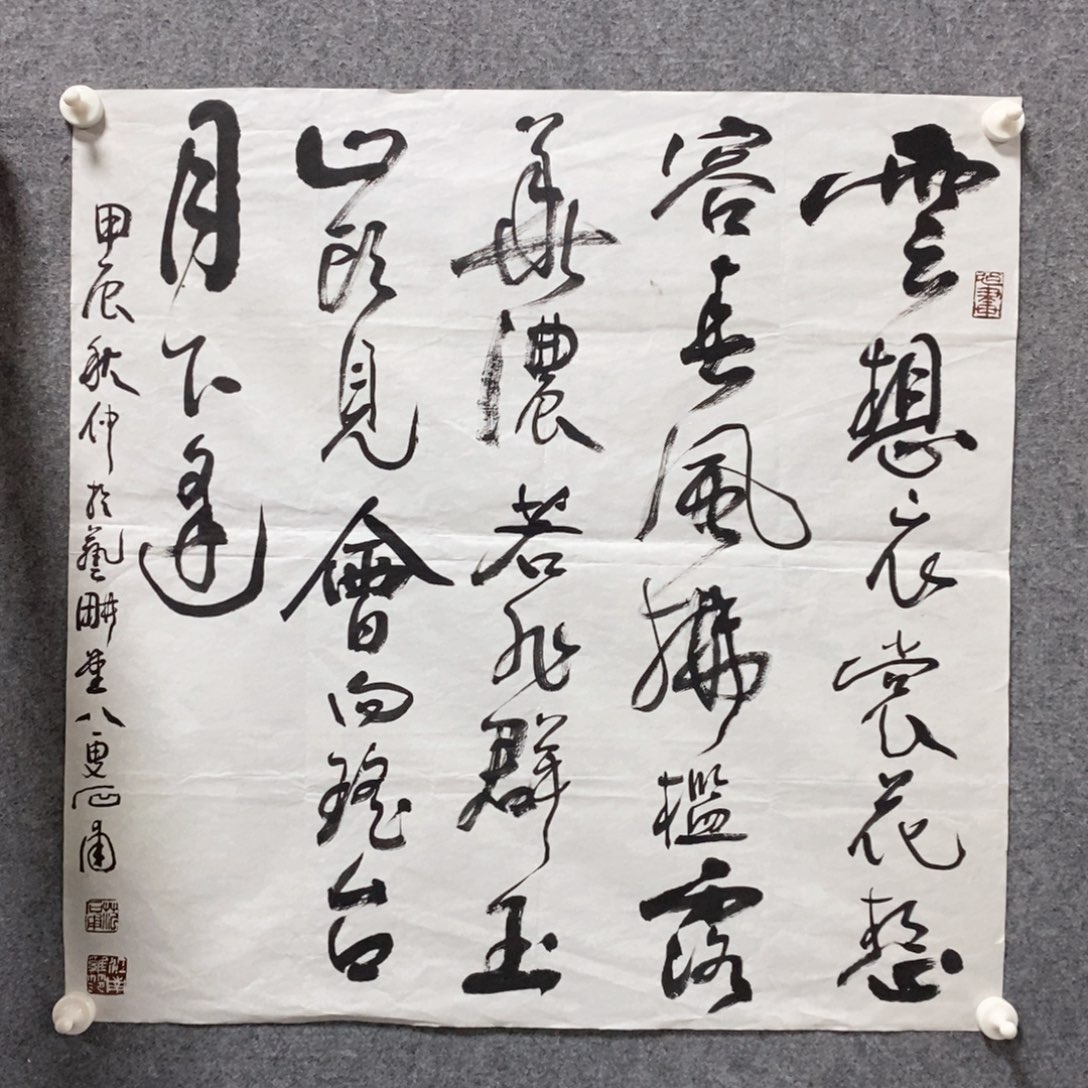 雲想衣裳花想
容春風拂檻露
華濃若非群玉
山頭見會向瑤台
月下逢
甲辰秋仲於藝畊堂八叟石甫